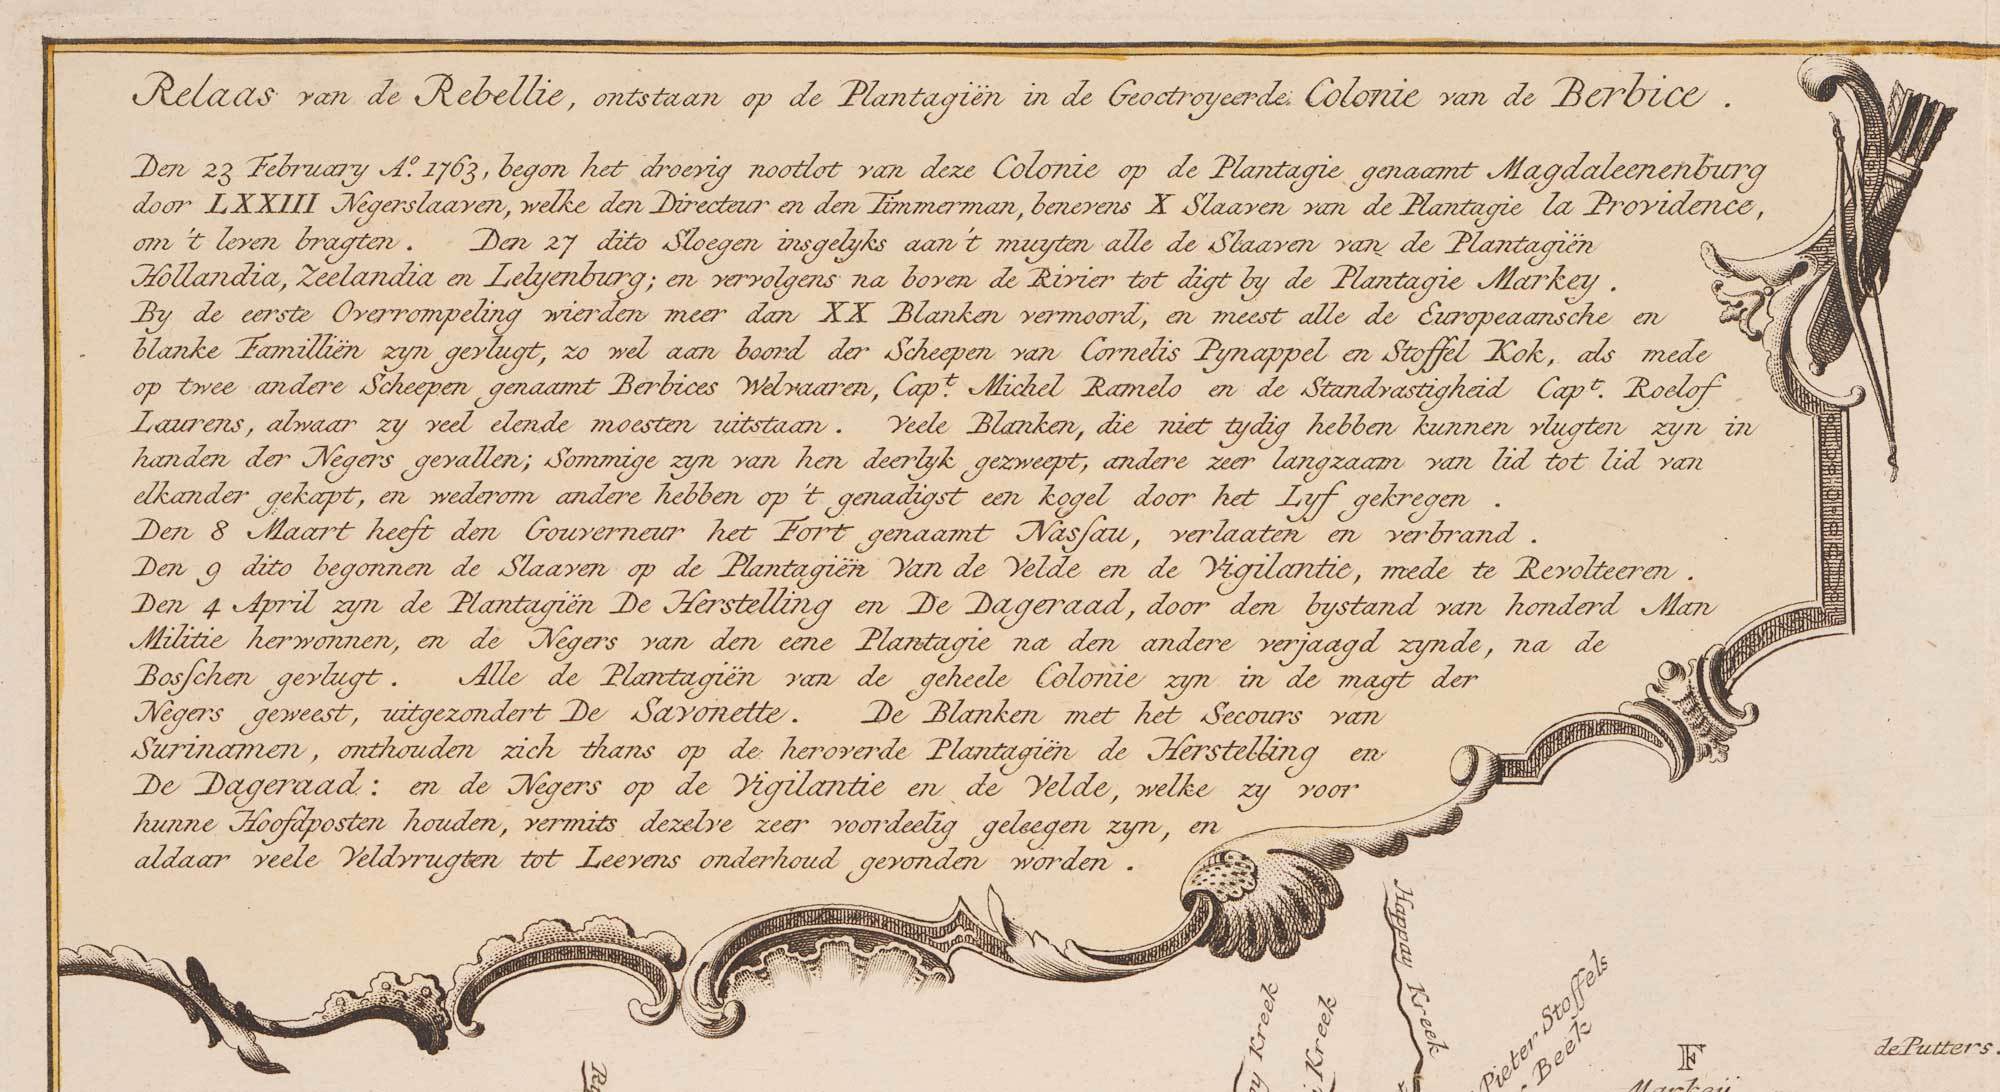 Relaas van de Rebellie, ontstaan op de Plantagiën in de Geoctroyeerde Colonie van de Berbice.
Den 23 February Aº. 1763, begon het droevig nootlot van deze Colonie op de Plantagie genaamt Magdaleenenburg
door LXXIII Negerslaaven, welke den Directeur en den Timmerman, benevens X Slaaven van de Plantagie la Providence,
om 't leven bragten. Den 27 dito Sloegen insgelyks aan 't muyten alle de Slaaven van de Plantagiën
Hollandia, Zeelandia en Lelyenburg; en vervolgens na boven de Rivier tot digt by de Plantagie Markey.
By de eerste Overrompeling wierden meer dan XX Blanken vermoord, en meest alle de Europeaansche en
blanke Familliën zyn gevlugt, zo wel aan boord der Scheepen van Cornelis Pynappel en Stoffel Kok, als mede
op twee andere Scheepen genaamt Berbices Welvaaren, Capt. Michel Ramelo en de Standvastigheid Capt. Roelof
Laurens, alwaar zy veel elende moesten uitstaan. Veele Blanken, die niet tydig hebben kunnen vlugten zyn in
handen der Negers gevallen; Sommige zyn van hen deerlyk gezweept, andere zeer langzaam van lid tot lid van
elkander gekapt, en wederom andere hebben op 't genadigst een kogel door het Lyf gekregen.
Den 8 Maart heeft den Gouverneur het Fort genaamt Nasſau, verlaaten en verbrand.
Den 9 dito begonnen de Slaaven op de Plantagiën Van de Velde en de Vigilantie, mede te Revolteeren.
Den 4 April zyn de Plantagiën De Herstelling en De Dageraad, door den bystand van honderd Man
Militie herwonnen, en de Negers van den eene Plantagie na den andere verjaagd zynde, na de
Bosſchen gevlugt. Alle de Plantagiën van de geheele Colonie zyn in de magt der
Negers geweest, uitgezondert De Savonette. De Blanken met het Secours van
Surinamen, onthouden zich thans op de heroverde Plantagiën de Herstelling en
De Dageraad: en de Negers op de Vigilantie en de Velde, welke zy voor
hunne Hoofdposten houden, vermits dezelve zeer voordeelig geleegen zyn, en
aldaar veele Veldvrugten tot Leevens onderhoud gevonden worden.
Hapay Kreek
Kreek
Kreek
Pieter Stoffels
Beek
F
Markeÿ
de Putters.